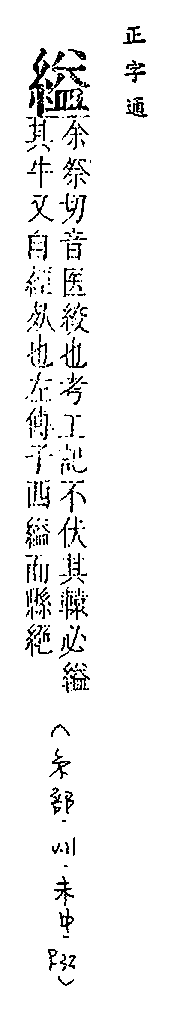 正字通
縊
余祭切音医絞也考工記不伏其轅必縊
其牛又自經㱾也左傳子西縊而縣絕
(糸部.川.未中.P32)